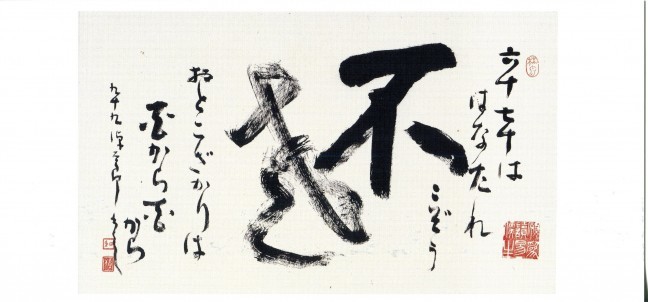 六十七十は
はなたれ
こぞう
不老
おとこざかりは
百から百
から
九十九